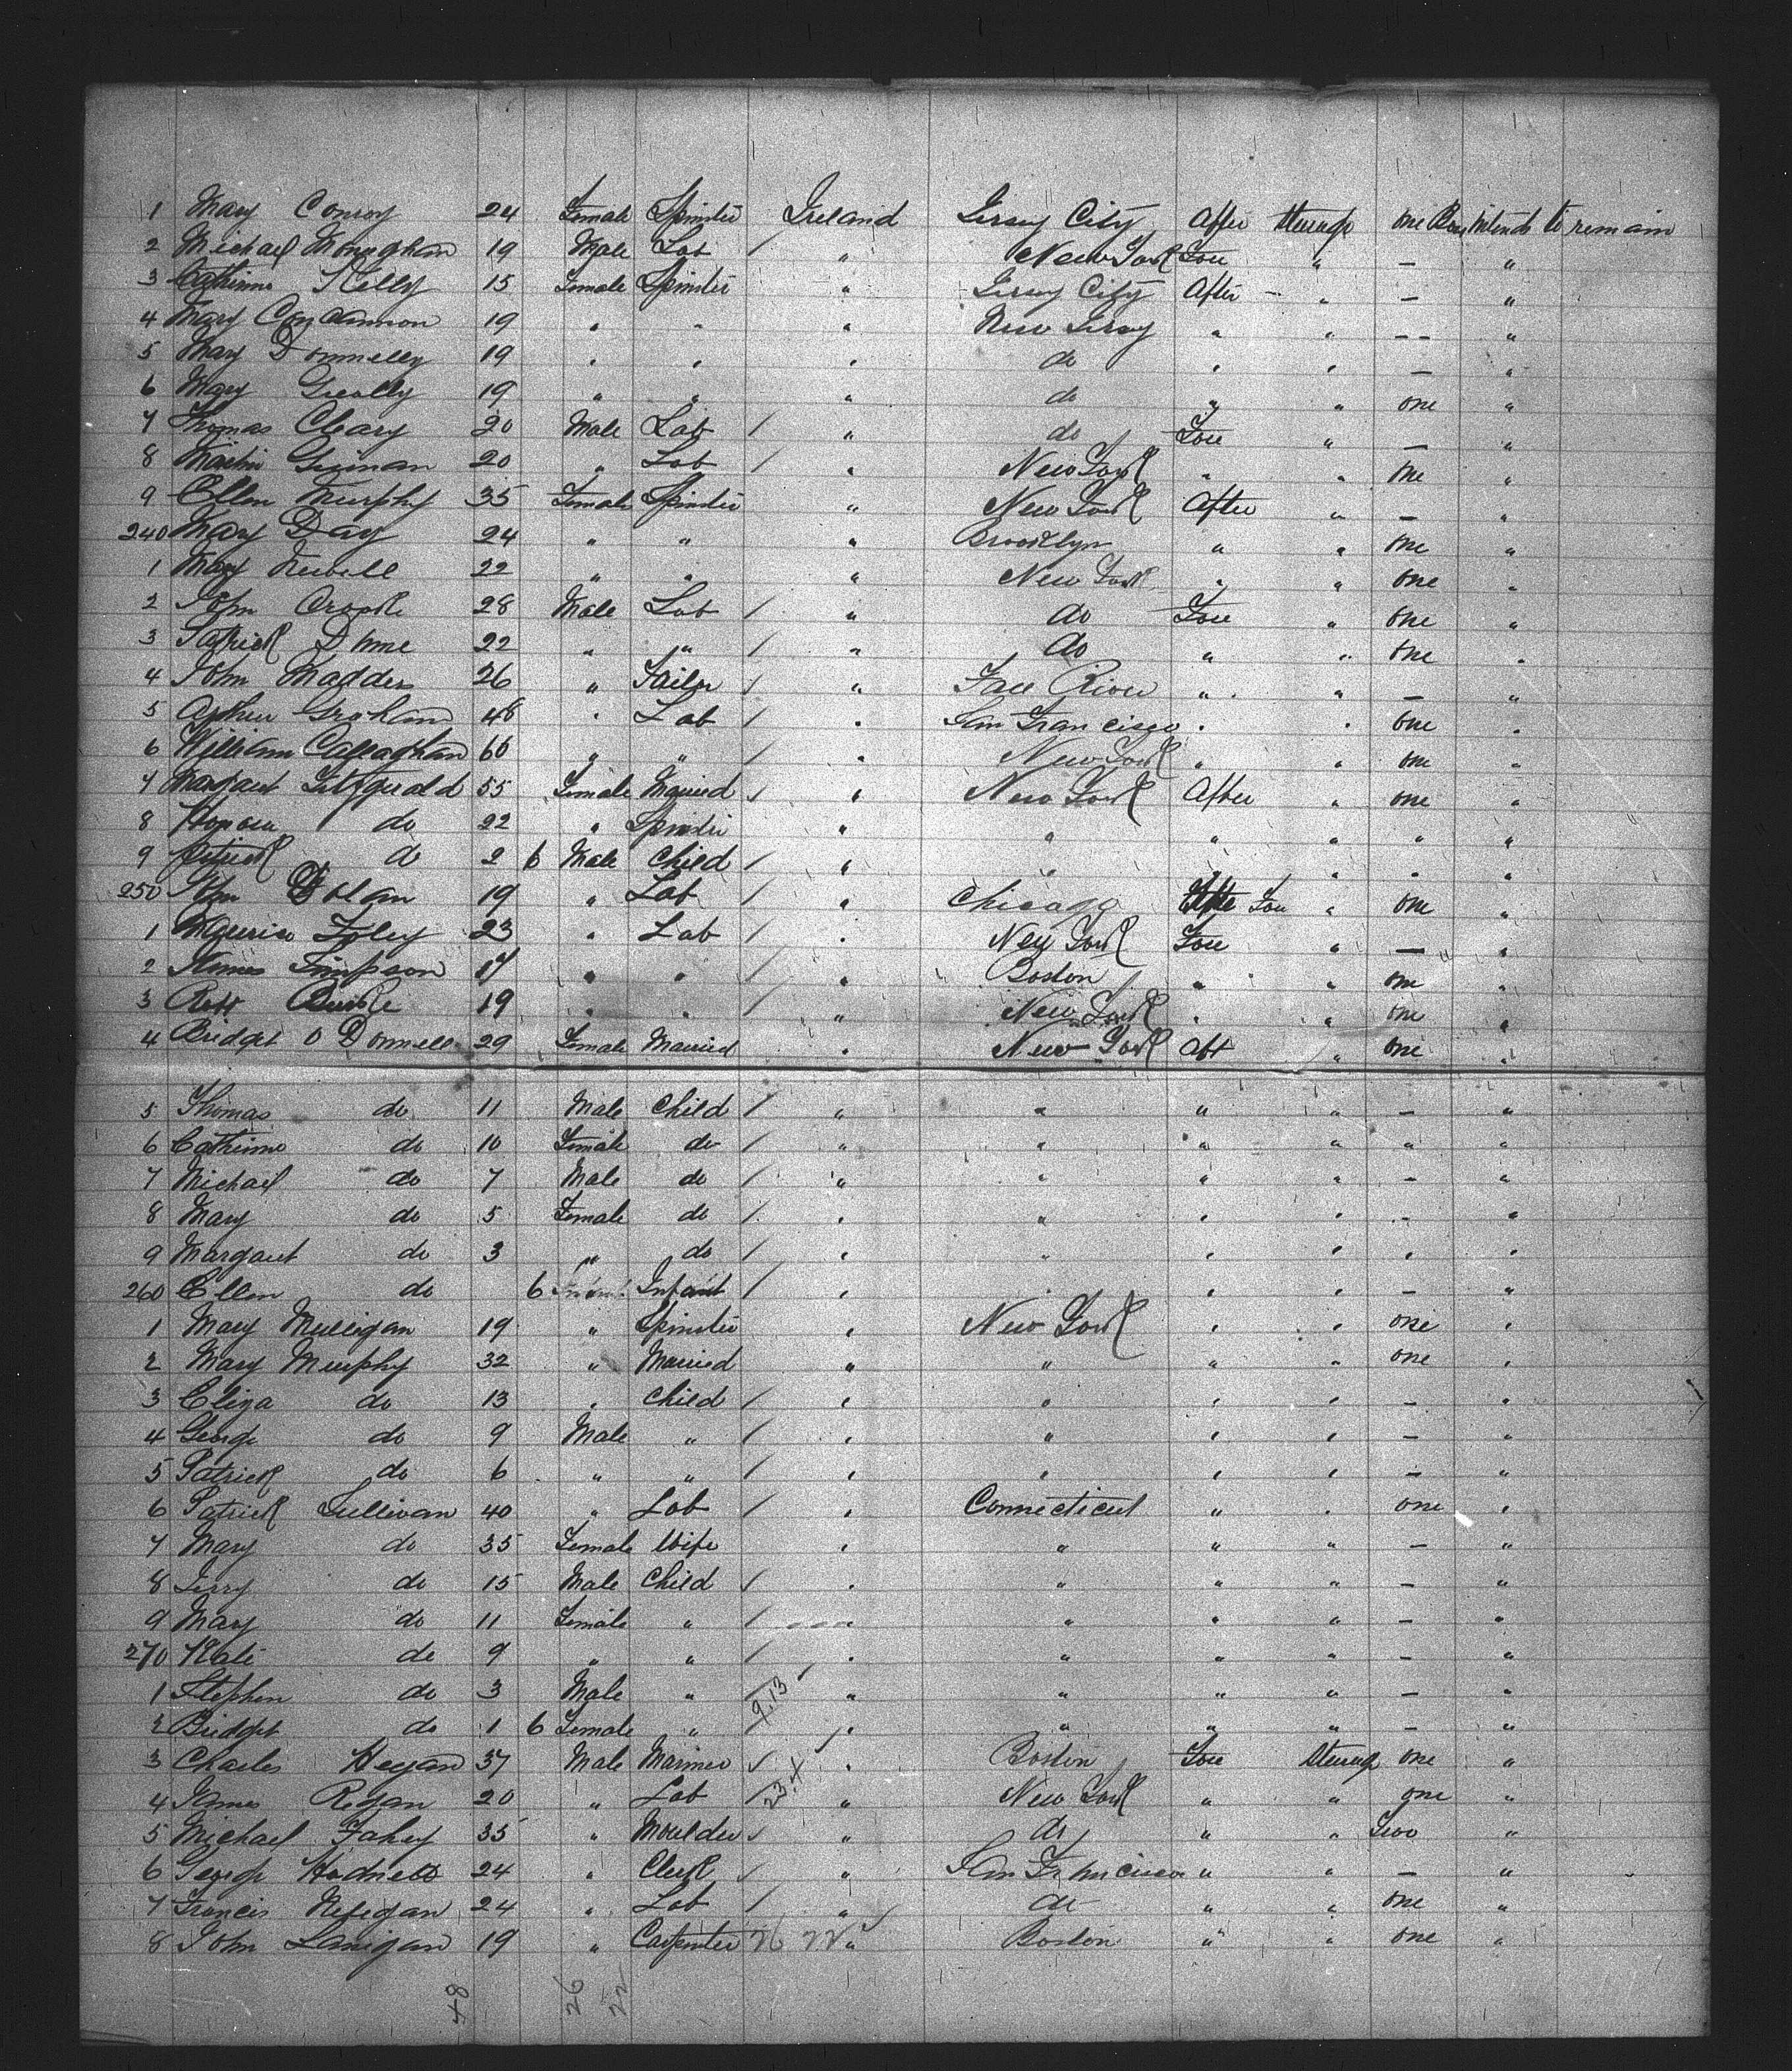 1 Mary Conroy 24 Female Spinster Ireland Jersey City After Steerage one Bag intends to remain
2 Michael Monaghan 19 Male Lab / " New York Fore " — "
3 Catherine Kelly 15 Female Spinster " Jersey City After " — "
4 Mary Concannon 19 " " " New Jersey " " -- "
5 Mary Donnelly 19 " " " do " " — "
6 Mary Greally 19 " " " do " " one "
7 Thomas Cleary 20 Male Lab / " do Fore " — "
8 Martin 20 " Lab / " New York " " one "
9 Ellen Murphy 35 Female Spinster " New York After " — "
240 Mary Day 24 " " " Brooklyn " " one "
1 Mary Newell 22 " " " New York " " one "
2 John 28 Male Lab / " do Fore " one "
3 Patrick 22 " " / " do " " one "
4 John Madden 26 " Tailor / " Fall River " " — "
5 Arthur Graham 48 " Lab / " San Francisco " " one "
6 William Callaghan 66 " " / " New York " " one "
7 Margaret Fitzgerald 55 Female Married / " New York After " one "
8 Honora do 22 " Spinster " " " " " "
9 Patrick do 2 6 Male Child / " " " " " "
250 John Dolan 19 " Lab / " Chicago Fore " one "
1 Maurice Foley 23 " Lab / " New York Fore " — "
2 James Simpson 17 " " / " Boston " " one "
3 Robt Burke 19 " " / " New York " " one "
4 Bridget O Donnell 29 Female Married " New York Aft " one "
5 Thomas do 11 Male Child / " " " " — "
6 Catherine do 10 Female do / " " " " " "
7 Michael do 7 Male do / " " " " — "
8 Mary do 5 Female do / " " " " — "
9 Margaret do 3 " do / " " " " " "
260 Ellen do 6 Infant / " " " " — "
1 Mary Mulligan 19 " Spinster " New York " " one "
2 Mary Murphy 32 " Married " " " " one "
3 Eliza do 13 " Child / " " " " — "
4 George do 9 Male " / " " " " — "
5 Patrick do 6 " " / " " " " — "
6 Patrick Sullivan 40 " Lab / " Connecticut " " one "
7 Mary do 35 Female Wife " " " " — "
8 Jerry do 15 Male Child / " " " " — "
9 Mary do 11 Female " / " " " " — "
270 Kate do 9 " " / " " " " — "
1 Stephen do 3 Male " / 9.13 " " " " — "
2 Bridget do 1 6 Female " / " " " " — "
3 Charles Hegan 37 Male Mariner / " Boston Fore Steerage one "
4 James Regan 20 " Lab / 23.4 " New York " " one "
5 Michael Fahey 35 " Moulder / " do " " Two "
6 George Hodnett 24 " Clerk / " San Francisco " " — "
7 Francis 24 " Lab / " do " " one "
8 John Lanigan 19 " Carpenter 26 22 " Boston " " one "
48 26 22